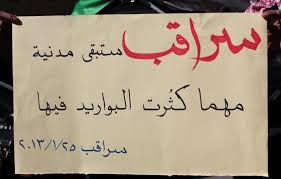 سراقب ستبقى مدنية
مهما كثُرت البواريد فيها
سراقب ٢٠١٣/١/٢٥